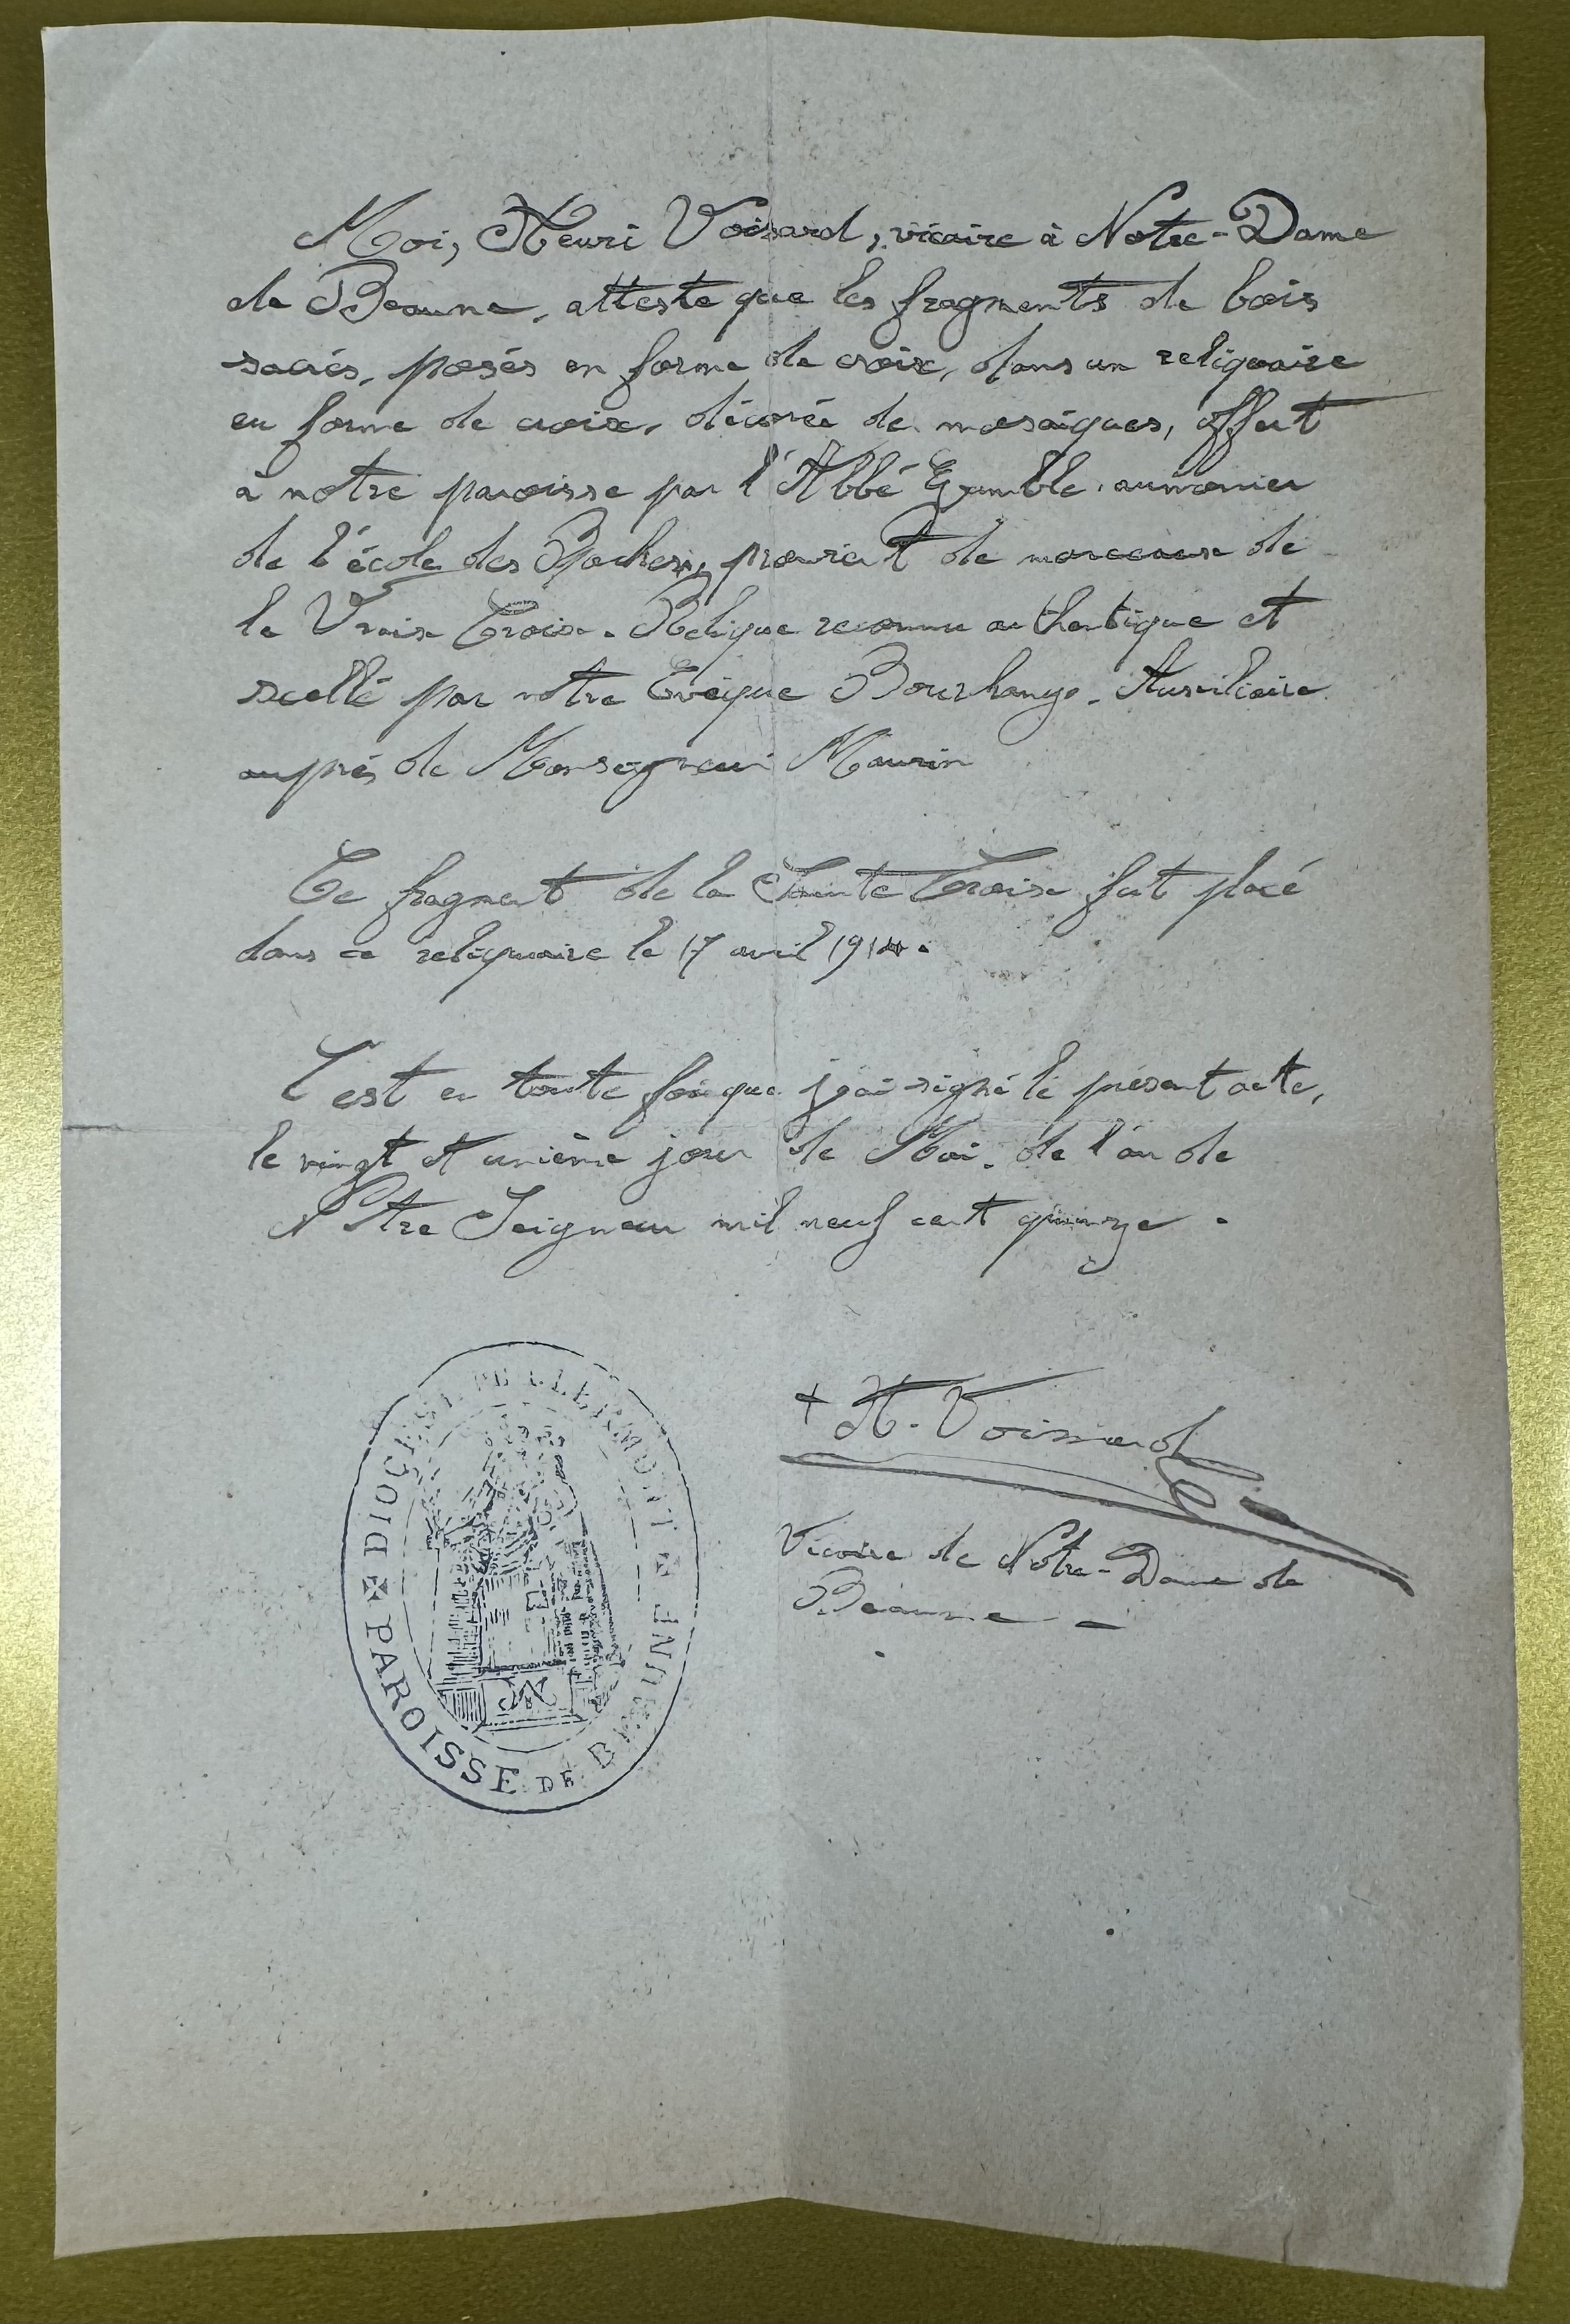 Moi, Henri Voissard, vicaire à Notre-Dame
de Beaune, atteste que les fragments de bois
sacrés, posés en forme de croix, dans un reliquaire
en forme de croix, décoré de mosaïques, offert
à notre paroisse par l'Abbé Gamble, aumonier
de l'école des Roches, provient de morceaux de
la Vraix Croix. Relique reconnu authentique et
scellé par notre Evêque Bourchany. Auxiliaire
auprès de Monseigneur Maurin
Ce fragment de la Sainte Croix fut placé
dans ce reliquaire le 17 avril 1914.
C'est en toute foi que j'ai signé le présent acte,
le vingt et unième jour de Mai. de l'an de
Notre Seigneur mil neuf cent quinze.
+ H. Voissard
Vicaire de Notre-Dame de
Beaune
DIOCESE DE CLERMONT
PAROISSE DE